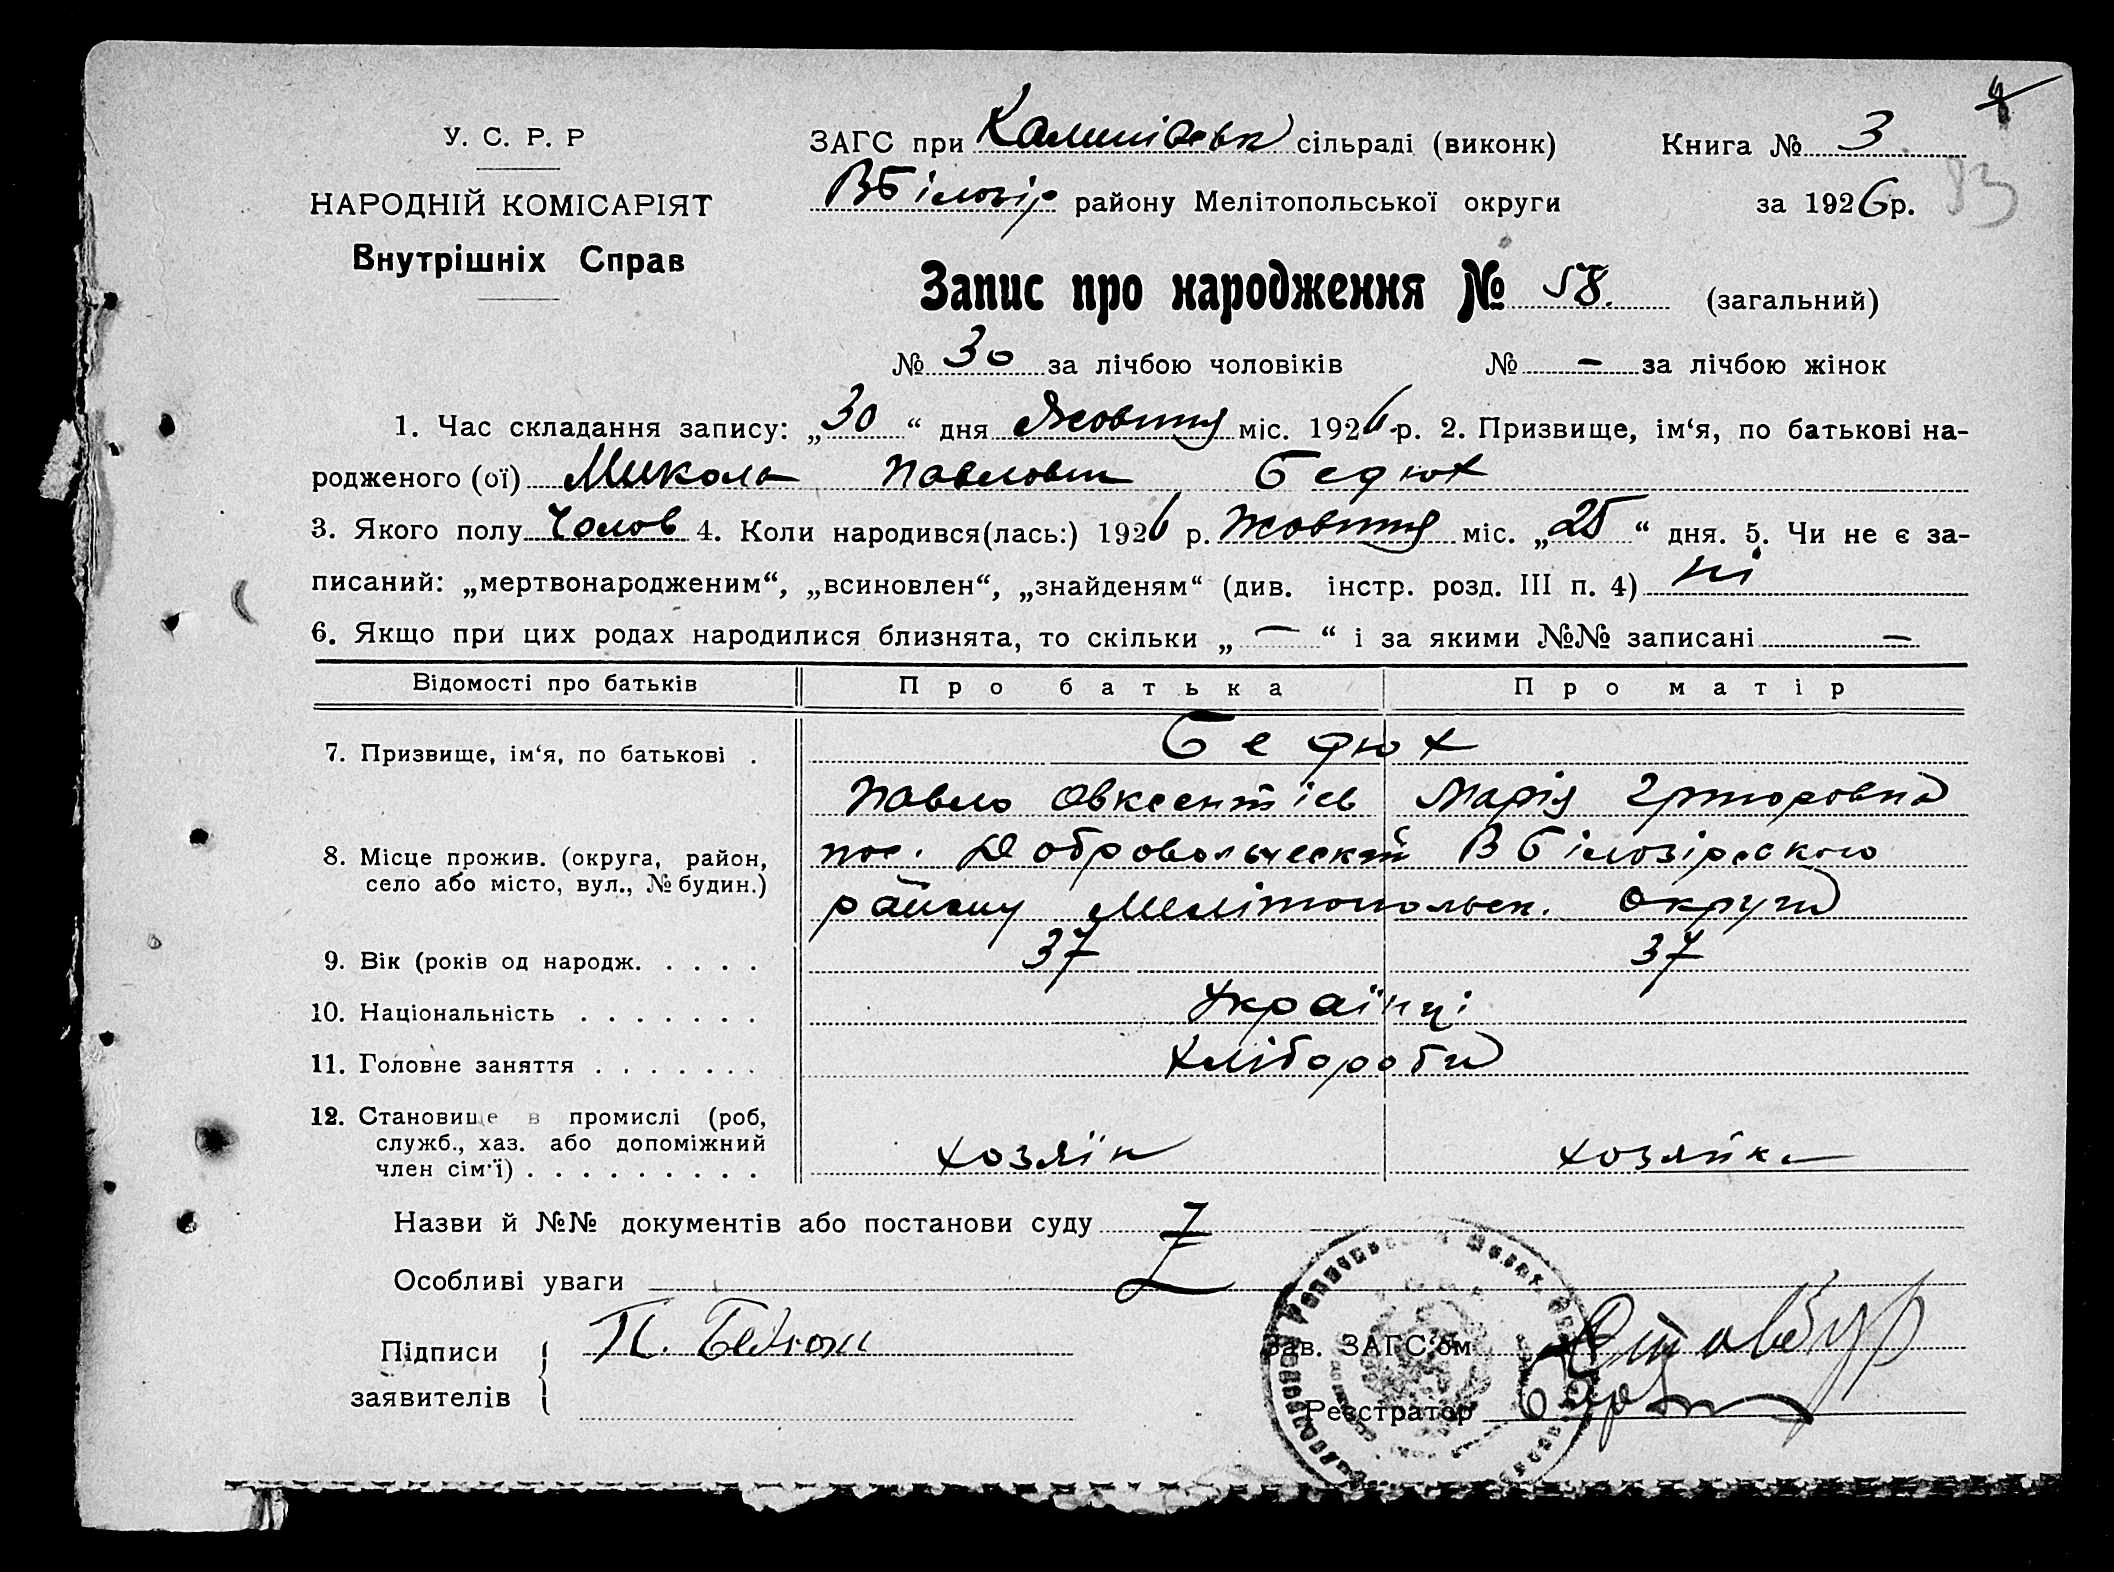 4
У. С. Р. Р
НАРОДНІЙ КОМІСАРІЯТ
Внутрішніх Справ
ЗАГС при Калинівськ сільраді (виконк) Книга № 3
ВБілозір району Мелітопольської округи за 1926 р. 83
Запис про народження № 58. (загальний)
№ 30 за лічбою чоловіків № – за лічбою жінок
1. Час складання запису: „30“ дня Жовтня міс. 1926 р. 2. Призвище, ім‘я, по батькові на-
родженого (ої) Микола Павлович Бедюх
3. Якого полу Чолов 4. Коли народився(лась:) 1926 р. Жовтня міс. „25“ дня. 5. Чи не є за-
писаний: „мертвонародженим“, „всиновлен“, „знайденям“ (див. інстр. розд. III п. 4) ні
6. Якщо при цих родах народилися близнята, то скільки „ – “ і за якими №№ записані –
Відомості про батьків Про батька Про матір
7. Призвище, ім‘я, по батькові . Бедюх
Павло Овксентіев Марія Григоровна
8. Місце прожив. (округа, район, пос. Добровольческий ВБілозірського
село або місто, вул., № будин.) району Мелітопольськ. Округи
9. Вік (років од народж. . . . . 37 37
10. Національність . . . . . . . Українці
11. Головне заняття . . . . . . . Хлібороби
12. Становище в промислі (роб,
служб., хаз. або допоміжний хозяїн хозяйка
член сім‘ї) . . . . . . . . .
Назви й №№ документів або постанови суду
Особливі уваги
Підписи П. Бедюх Зав. ЗАГС‘ом
заявителів Реєстратор